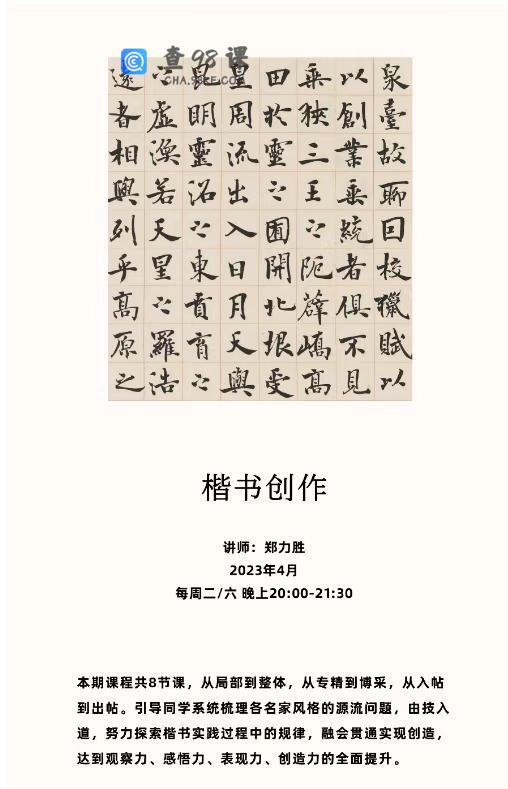 查98课
CHA.98KE.COM
泉臺故聊回校獵賦以
以創業垂統者俱不見
乘狹三王之阨薜嶠高
田於靈之囿開北垠受
皇周流出入日月天與
昆明靈沼之東賁育之
之虛渙若天星之羅浩
遠者相與列乎高原之
楷书创作
讲师：郑力胜
2023年4月
每周二/六 晚上20:00-21:30
本期课程共8节课，从局部到整体，从专精到博采，从入帖
到出帖。引导同学系统梳理各名家风格的源流问题，由技入
道，努力探索楷书实践过程中的规律，融会贯通实现创造，
达到观察力、感悟力、表现力、创造力的全面提升。